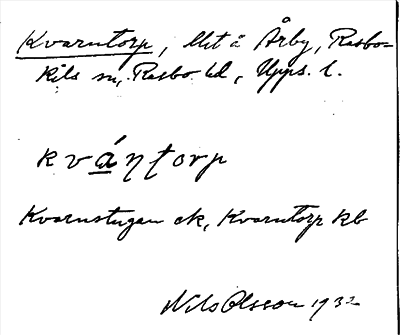 Kvarntorp, lht å Årby, Rasbo-
kils sn, Rasbo hd, Upps. l.
kvántorp
Kvarnstugan ek, Kvarntorp kb
Nils Olsson 1932